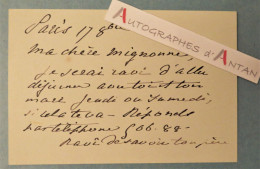 Paris 17 8bre
AUTOGRAPHES
D'ANTAN
Ma chère mignonne,
je serai ravi d'aller
déjeuner avec toi et ton
mari jeudi ou samedi,
si cela te va - Réponds
par téléphone 566-88-
Ravi de savoir ton père